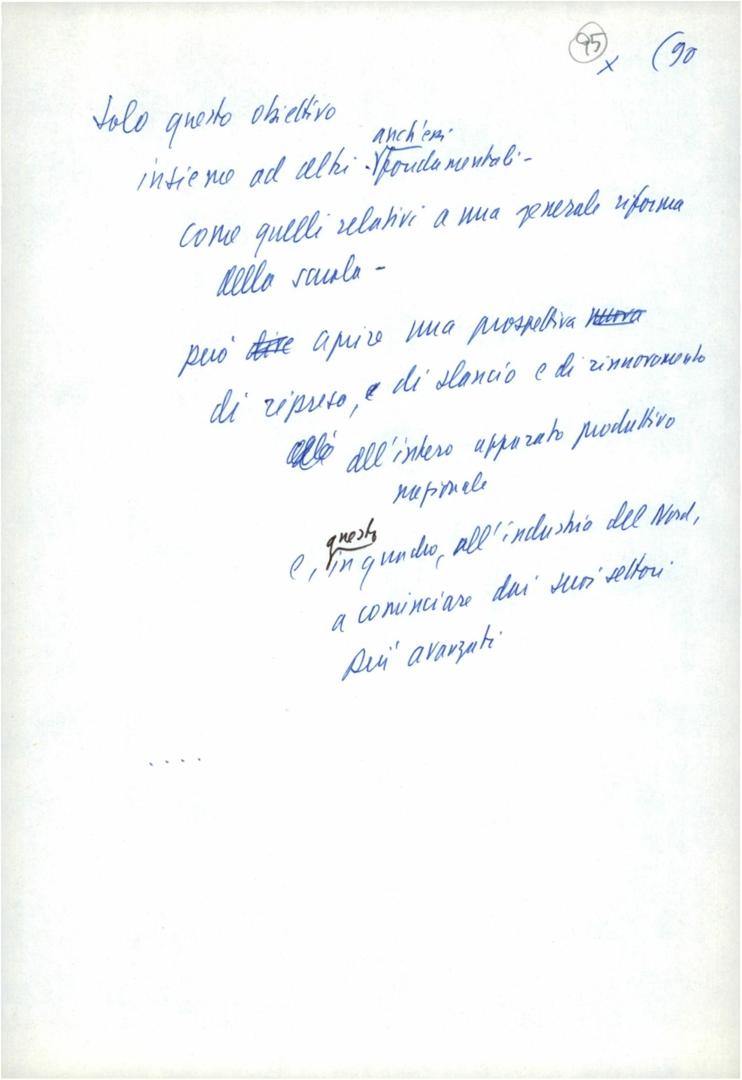 95 x (90
Solo questo obiettivo
anch'essi
insieme ad altri - fondamentali -
come quelli relativi a una generale riforma
della scuola -
può dire aprire una prospettiva nuova
di ripresa, e di slancio e di rinnovamento
all'intero apparato produttivo
nazionale
questo
e, in quadro, all'industria del Nord,
a cominciare dai suoi settori
più avanzati
....